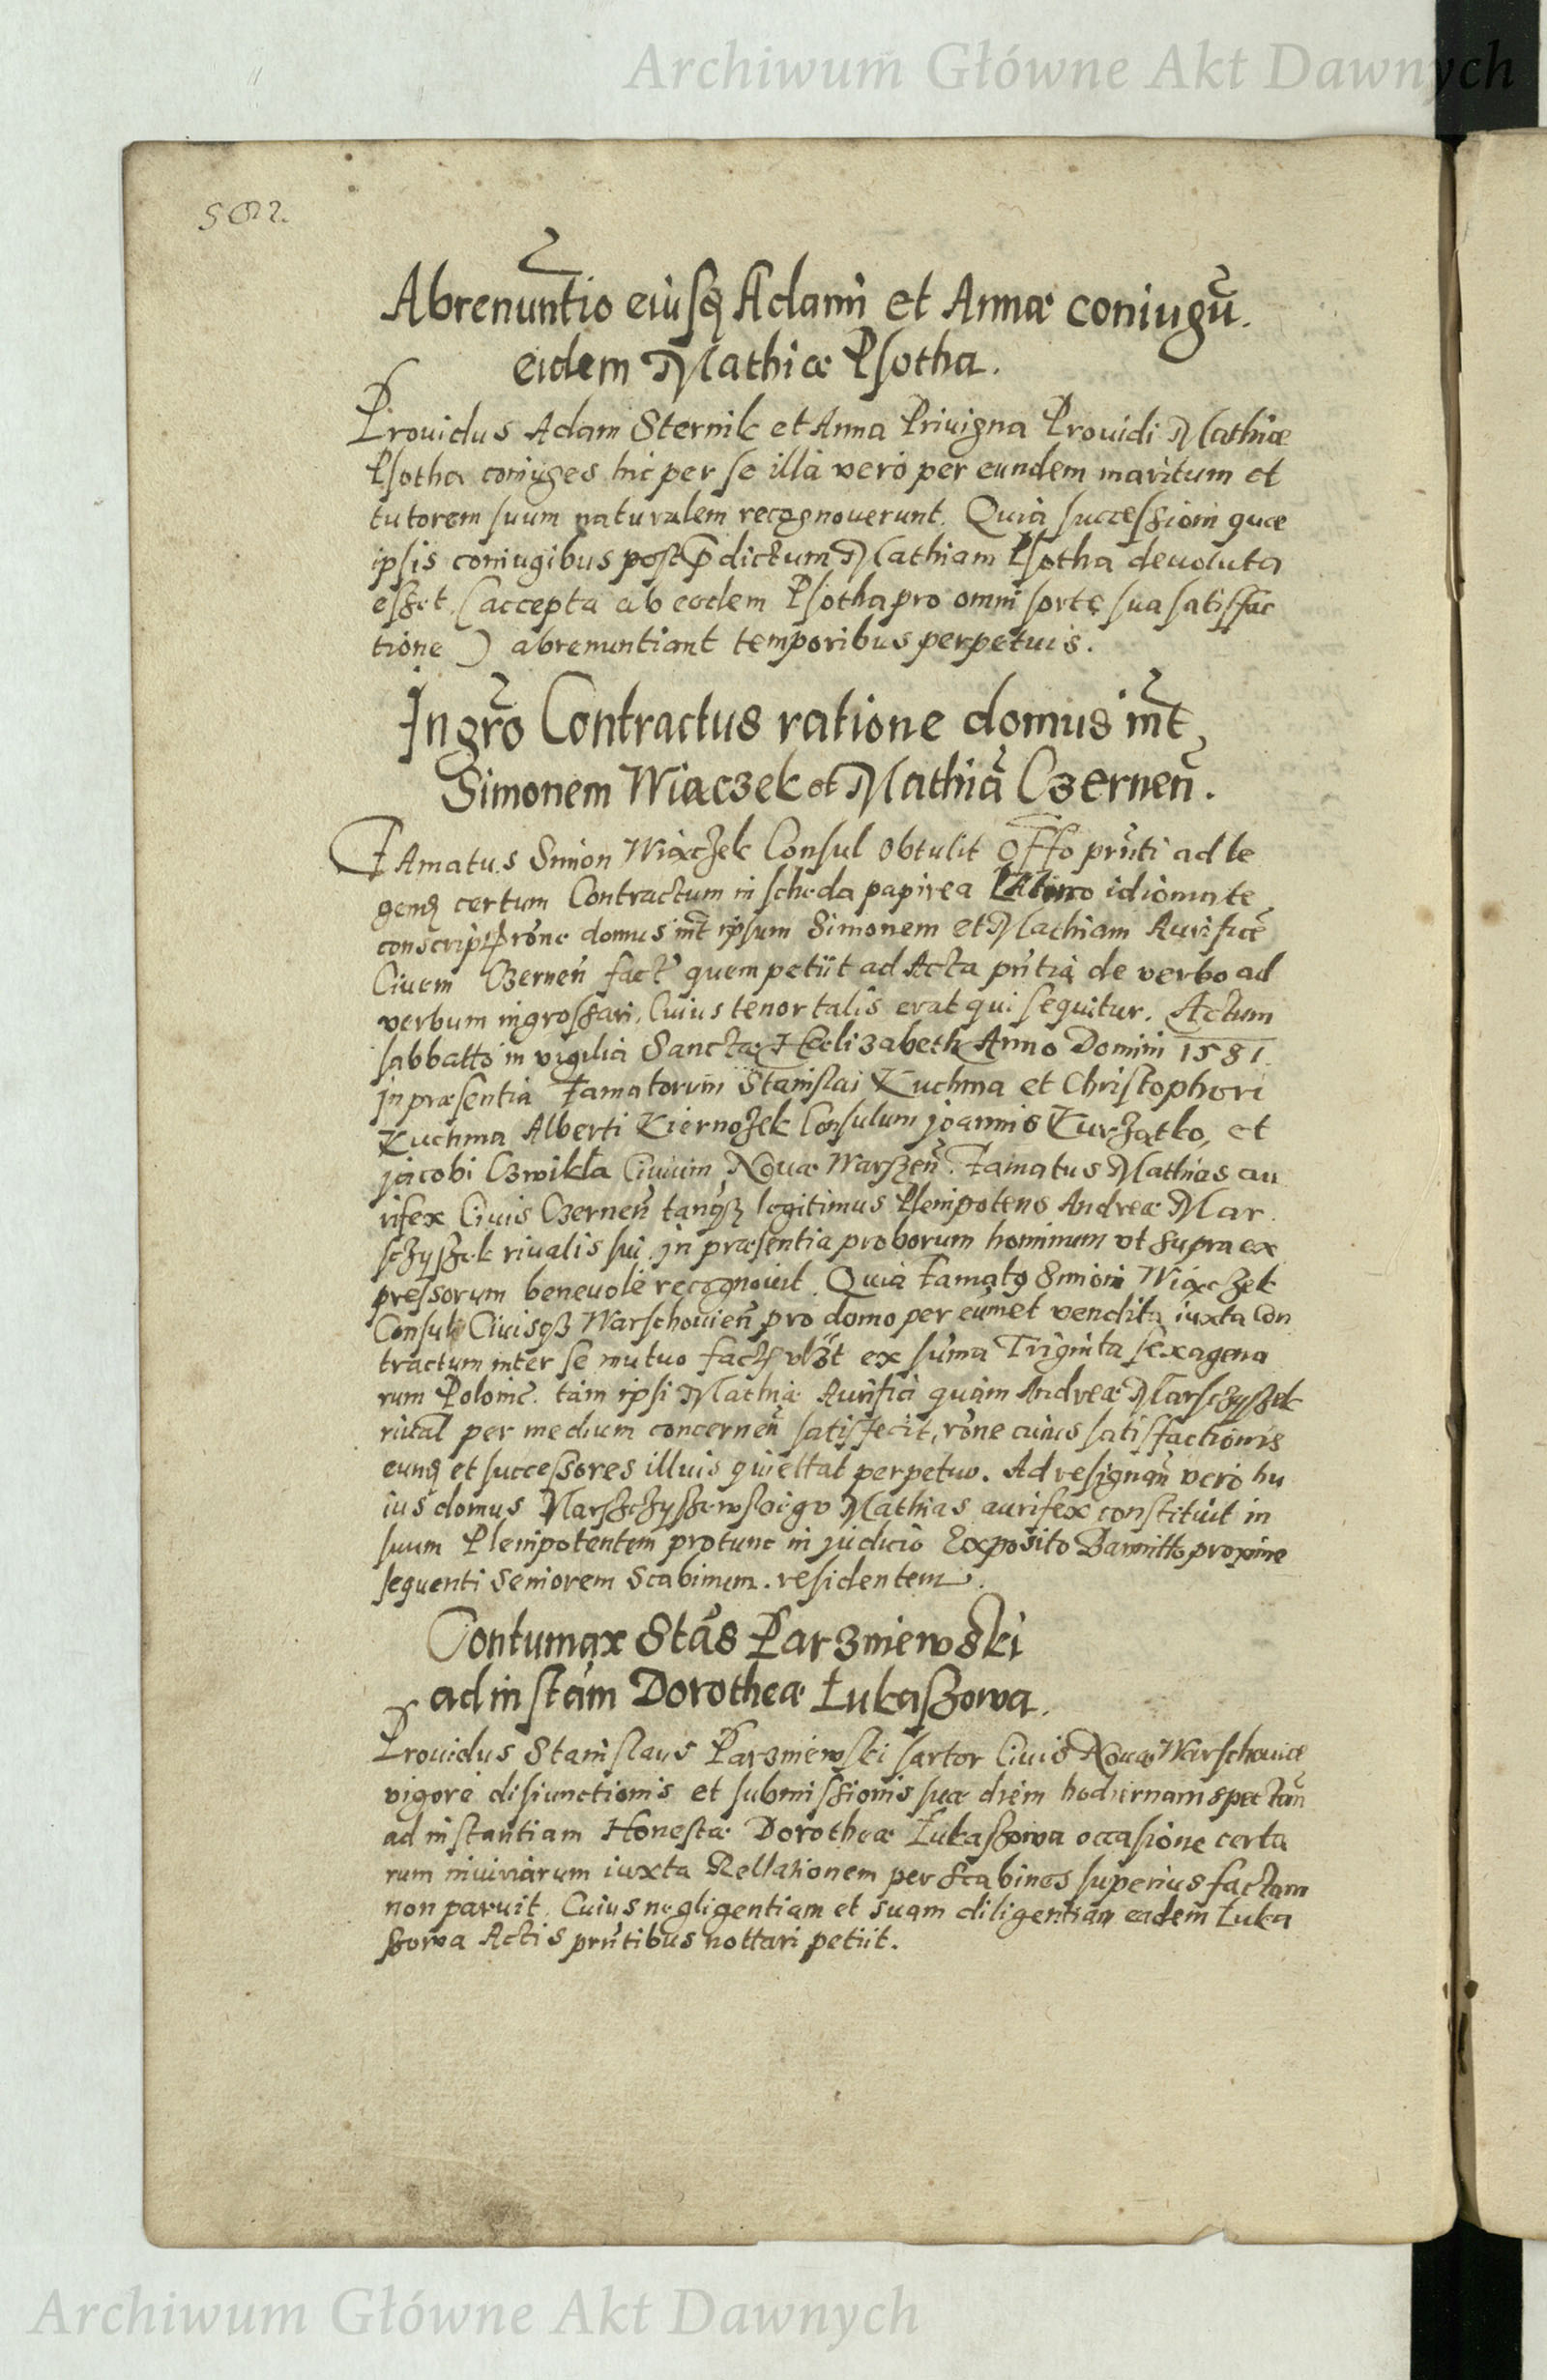 Archiwum Główne Akt Dawnych
Abrenuntio eiusq Adami et Annæ coniugū.
eidem Mathiæ Psotha.
Prouidus Adam Sternik et Anna Priuigna Prouidi Mathiæ
Psotha coniuges hic per se illa vero per eundem maritum et
tutorem suum naturalem recognouerunt. Quia successioni quæ
ipsis coniugibus post p̄dictum Mathiam Psotha deuoluta
esset (accepta ab eodem Psotha pro omni sorte sua satisfac
tione) abrenuntiant temporibus perpetuis.
Ingro Contractus ratione domus int̄
Simonem Wiączek et Mathiā Czerneñ.
Famatus Simon Wiączek Consul obtulit Offo pr̄nti ad le
gend certum Contractum in scheda papirea Latino idiomate
conscript rōne domus int̄ ipsum Simonem et Mathiam Aurificē
Ciuem Czerneñ fact quem petiit ad Acta pr̄ntia de verbo ad
verbum ingrossari, Cuius tenor talis erat qui sequitur. Actum
sabbatto in vigilia Sanctæ Helizabeth Anno Domini 1581.
In præsentia Famatorum Stanislai Kuchma et Christophori
Kuchma Alberti Kiernozek Consulum Joannis Kurzątko, et
Jacobi Czwikła Ciuium Nouæ Warszeñ. Famatus Mathias au
rifex Ciuis Czerneñ tanq legitimus Plenipotens Andreæ Mar
sczyszek riualis sui in præsentia proborum hominum vt supra ex
pressorum beneuole recognouit. Quia Famatg Simoni Wiączek
Consuli Ciuisq Warschouieñ pro domo per eum̄et vendita iuxta Con
tractum inter se mutuo fact vbzt ex sum̄a Triginta sexagena
rum Polonic. tam ipsi Mathiæ Aurifici quam Andreæ Marsczyszek
riual per medium concerneñ satisfecit, rōne cuius satisfactionis
eund et successores illius quiettat perpetuo. Ad resignan̄ vero hu
ius domus Marszczyszewskiego Mathias aurifex constituit in
suum Plenipotentem protunc in judicio Exposito Bannitto proxime
sequenti Seniorem Scabinum. residentem.
Contumax Stās Parzniewski
ad instām Dorotheæ Łukaszowa.
Prouidus Stanislaus Parzniewski sartor Ciuis Nouæ Warschouiæ
vigore disiunctionis et submissionis suæ diem hodiernam spectan̄
ad instantiam Honestæ Dorotheæ Łukaszowa occasione certa
rum iniuriarum iuxta Rellationem per Scabinos superius factam
non paruit. Cuius negligentiam et suam diligentiam eadem Łuka
szowa Actis pr̄ntibus nottari petiit.
Archiwum Główne Akt Dawnych